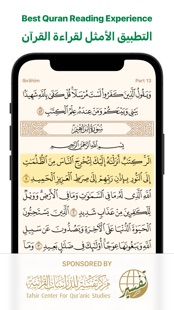 Best Quran Reading Experience
التطبيق الأمثل لقراءة القرآن
Ibrāhīm Part 13
وَيَقُولُ ٱلَّذِينَ كَفَرُوا۟ لَسْتَ مُرْسَلًا ۚ قُلْ كَفَىٰ بِٱللَّهِ شَهِيدًۢا
بَيْنِى وَبَيْنَكُمْ وَمَنْ عِندَهُۥ عِلْمُ ٱلْكِتَٰبِ
سُورَةُ إِبْرَاهِيمَ
بِسْمِ ٱللَّهِ ٱلرَّحْمَٰنِ ٱلرَّحِيمِ
الٓر ۚ كِتَٰبٌ أَنزَلْنَٰهُ إِلَيْكَ لِتُخْرِجَ ٱلنَّاسَ مِنَ ٱلظُّلُمَٰتِ
إِلَى ٱلنُّورِ بِإِذْنِ رَبِّهِمْ إِلَىٰ صِرَٰطِ ٱلْعَزِيزِ ٱلْحَمِيدِ
ٱللَّهِ ٱلَّذِى لَهُۥ مَا فِى ٱلسَّمَٰوَٰتِ وَمَا فِى ٱلْأَرْضِ ۗ وَوَيْلٌ
لِّلْكَٰفِرِينَ مِنْ عَذَابٍ شَدِيدٍ ٱلَّذِينَ يَسْتَحِبُّونَ
ٱلْحَيَوٰةَ ٱلدُّنْيَا عَلَى ٱلْءَاخِرَةِ وَيَصُدُّونَ عَن سَبِيلِ
SPONSORED BY
مركز تفسير للدراسات القرآنية
Tafsir Center For Qur'anic Studies
تفسير